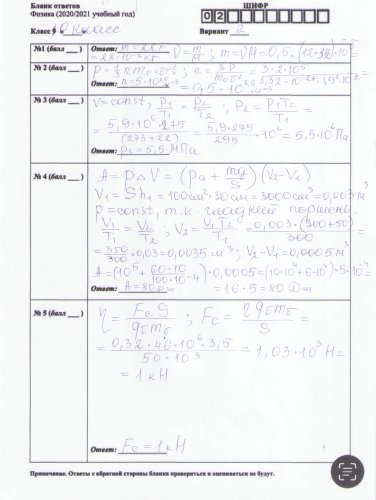 Бланк ответов
Физика (2020/2021 учебный год)
ШИФР
0 2
Класс 9 10 класс
Вариант 2
№1 (балл ___ )
Ответ: m = 22 г
= 22·10⁻³ кг
ν = m/M; m = νM = 0,5·(12+32)·10
№ 2 (балл ___ )
Ответ: n = 5·10
№ 3 (балл ___ )
V = const, P₁/T₁ = P₂/T₂; P₂ = P₁T₂/T₁ =
= 5,9·10⁶·275/(273+22) = 5,9·275/295·10⁶ = 5,5·10⁶ Па
Ответ: P₂ = 5,5 МПа
№ 4 (балл ___ )
A = PΔV = (Pa + mg/S)(V₂-V₁)
V₁ = Sh₁ = 100см²·30см = 3000см³ = 0,003м³
P = const, т.к. гладкий поршень.
V₁/T₁ = V₂/T₂; V₂ = V₁T₂/T₁ = 0,003·(300+50)/300 =
= 350/300·0,03 = 0,0035 м³; V₂-V₁ = 0,0005м³
A = (10⁵ + 60·10/100·10⁻⁴)·0,0005 = (10·10⁴+6·10⁴)·5·10⁻⁴ =
= 16·5 = 80 Дж
Ответ: A = 80 Дж
№ 5 (балл ___ )
η = Fc S/qδmδ; Fc = ηqδmδ/S =
= 0,32·46·10⁶·3,5/50·10³ = 1,03·10³ Н =
= 1 кН
Ответ: Fc = 1 кН
Примечание. Ответы с обратной стороны бланка проверяться и оцениваться не будут.